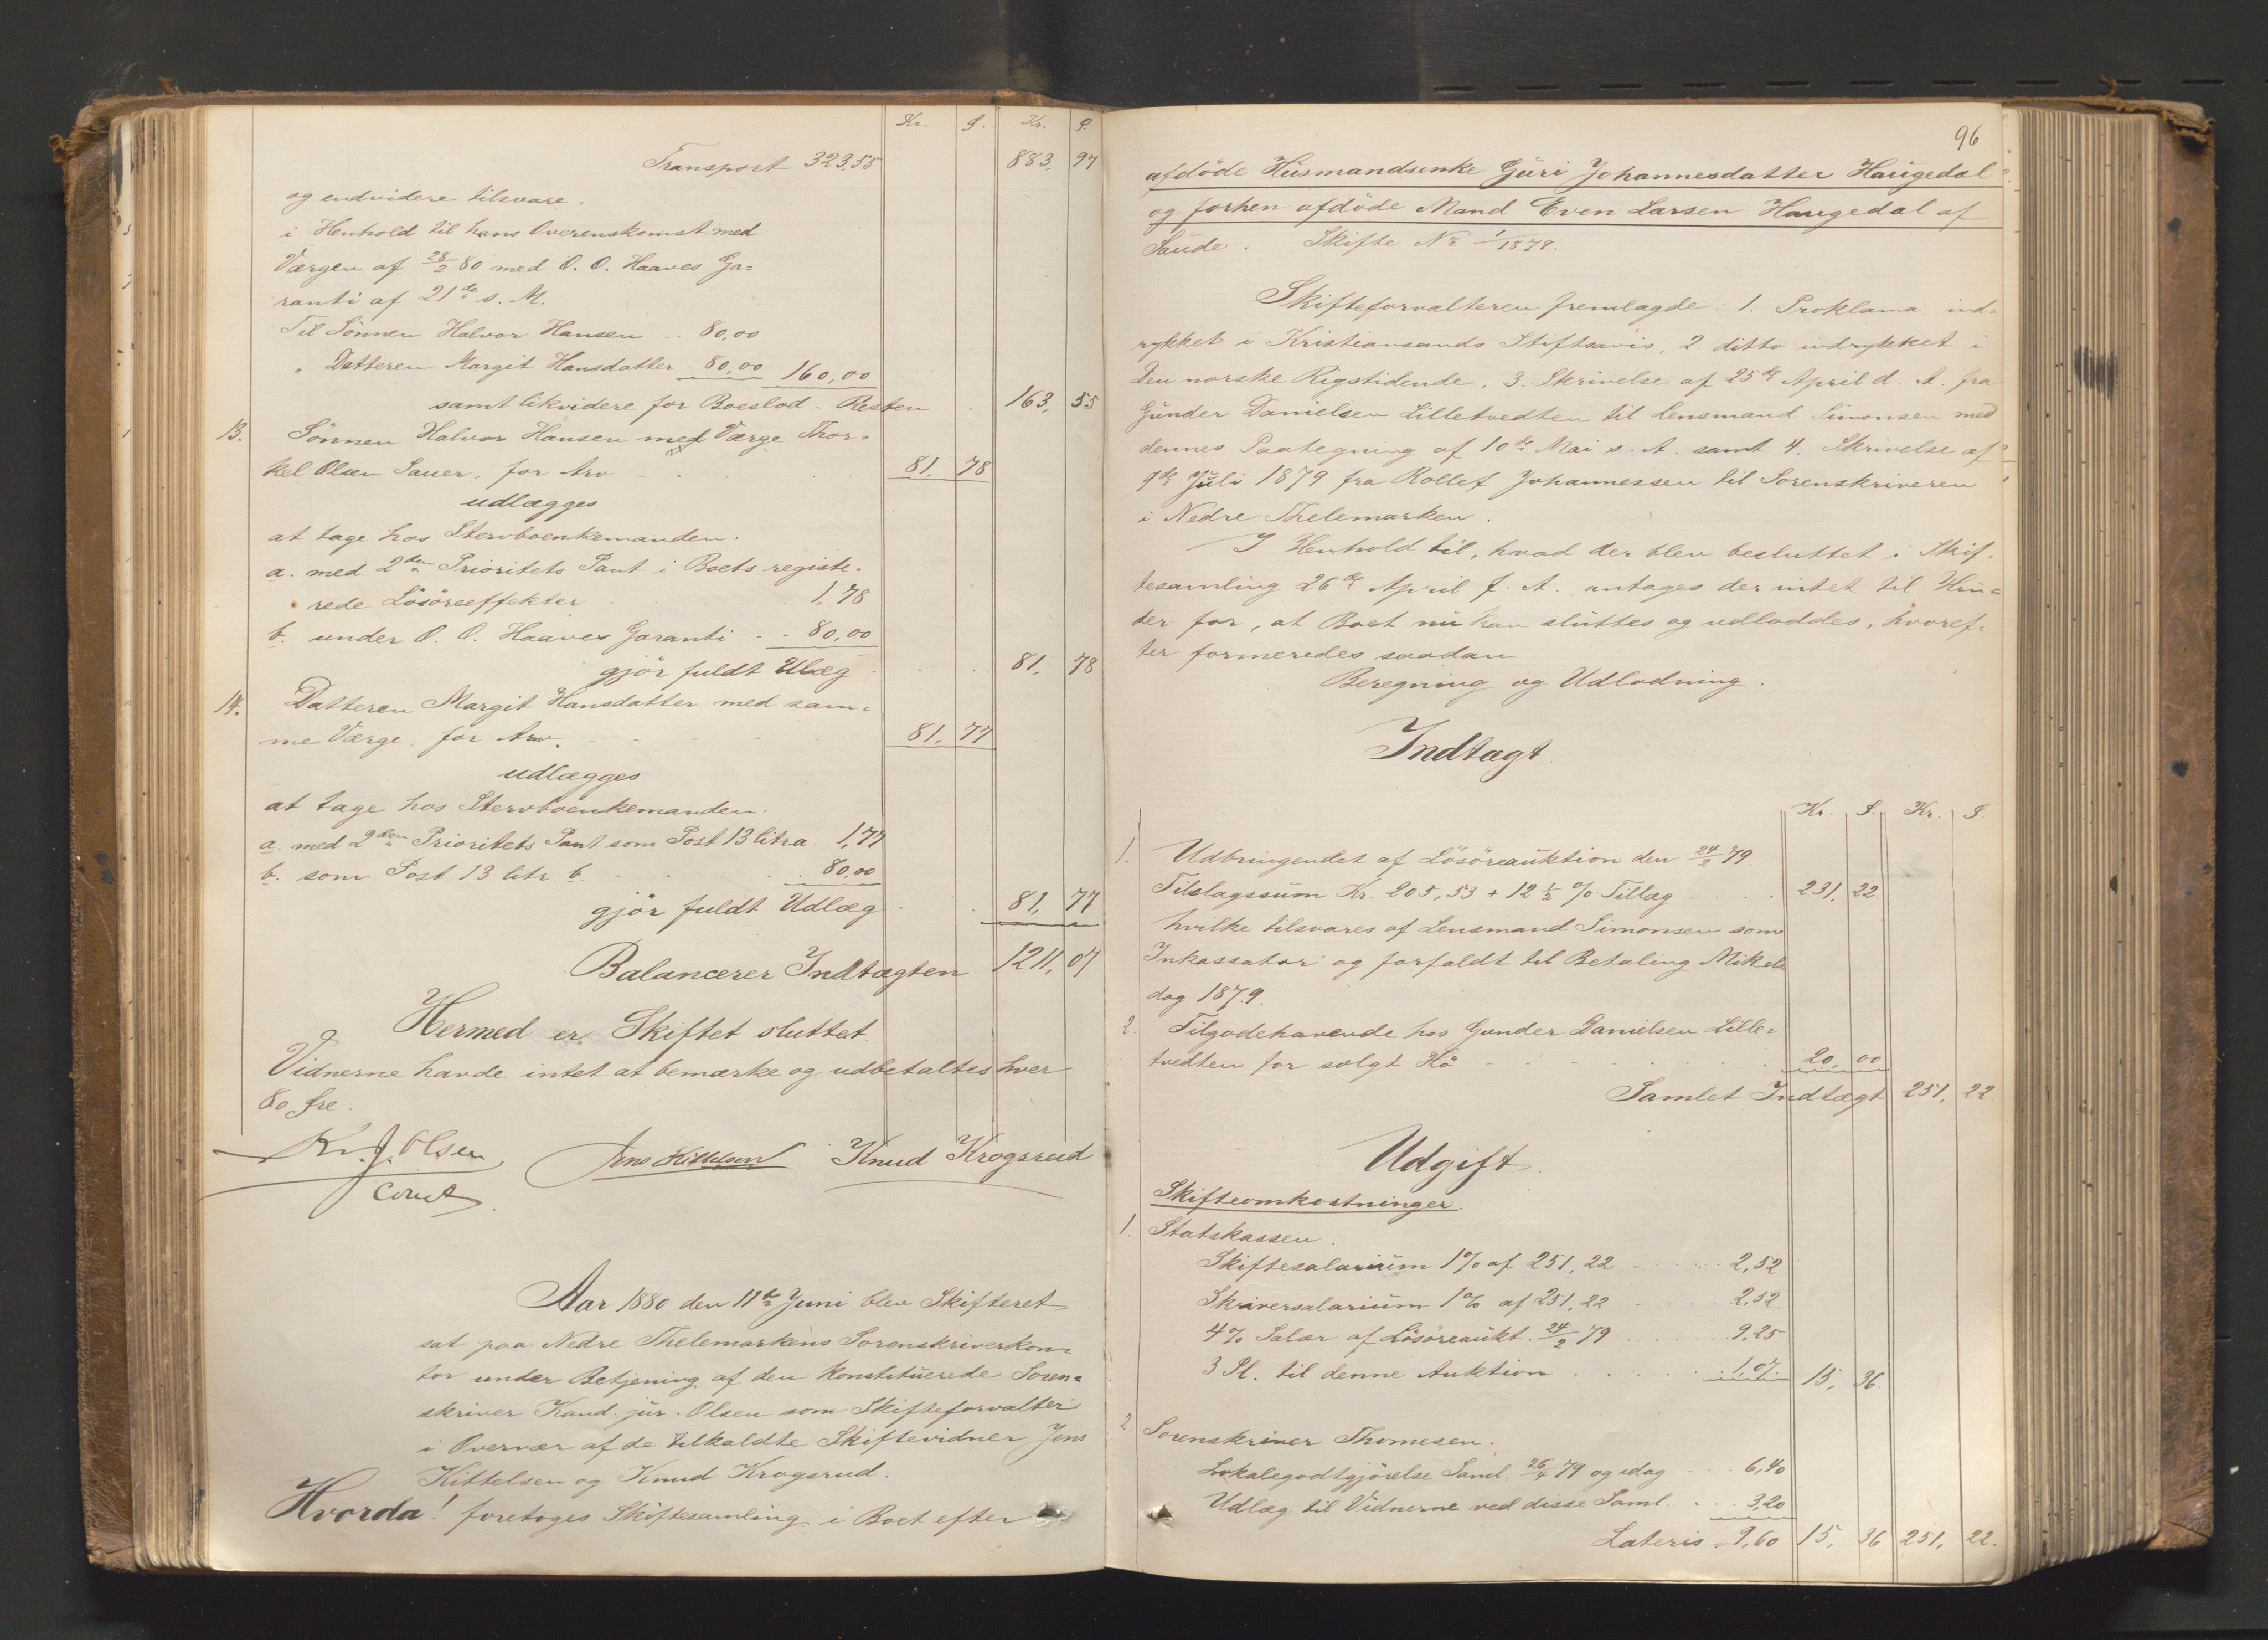 Kr. Ø. Kr. Ø.
Transport 323,55 883, 97
og endvidere tilsvare.
i Henhold til hans Overenskomst med
Værgen af 28/2 80 med O. O. Haaves Ga-
ranti af 21de s. M.
Til Sönnen Halvor Hansen .. 80,00
" Datteren Margit Hansdatter 80,00 160,00
samt likvidere for Boeslod. Resten 163, 55
13. Sönnen Halvor Hansen med Værge Thor-
kel Olsen Sauer, for Arv 81, 78
udlægges
at tage hos Stervboenkemanden.
a. med 2den Prioritets Pant i Boets registe-
rede Lösöreeffekter 1,78
b. under O. O. Haaves Garanti - - 80,00
gjör fuldt Ulæg 81, 78
14. Datteren Margit Hansdatter med sam-
me Værge, for Arv. 81, 77
udlægges
at tage hos Stervboenkemanden.
a. med 2den Prioritets Pant som Post 13 litra a. 1,77
b. som Post 13 litr. b. 80,00
gjör fuldt Udlæg 81, 77
Balancerer Indtægten 1211,07
Hermed er Skiftet sluttet.
Vidnerne havde intet at bemærke og udbetaltes hver
80 Øre.
Kr. J. Olsen Jens Kittelsen Knud Krogsrud
const.
Aar 1880 den 11te Juni blev Skifteret
sat paa Nedre Thelemarkens Sorenskriverkon-
tor under Betjening af den konstituerede Soren-
skriver Kand. jur. Olsen som Skifteforvalter
i Overvær af de tilkaldte Skiftevidner Jens
Kittelsen og Knud Krogsrud.
Hvorda! foretoges Skiftesamling i Boet efter
96
afdöde Husmandsenke Guri Johannesdatter Haugedal
og forhen afdöde Mand Even Larsen Haugedal af
Saude. Skifte No 1/1879.
Skifteforvalteren fremlagde: 1. Proklama ind-
rykket i Kristiansands Stiftsavis, 2. ditto indrykket i
Den norske Rigstidende, 3. Skrivelse af 25de April d. A. fra
Gunder Danielsen Lilletvedten til Lensmand Simonsen med
dennes Paategning af 10de Mai s. A. samt 4. Skrivelse af
9de Juli 1879 fra Rollef Johannessen til Sorenskriveren
i Nedre Thelemarken.
I Henhold til, hvad der blev besluttet i Skif-
tesamling 26de April f. A. antages der intet til Hin-
der for, at Boet nu kan sluttes og udloddes, hvoref-
ter formeredes saadan
Beregning og Udlodning.
Indtægt.
Kr. Ø. Kr. Ø.
1. Udbringendet af Lösöreauktion den 24/2 79.
Tilslagssum Kr. 205,53 + 12 1/2 % Tillæg 231, 22.
hvilke tilsvares af Lensmand Simonsen som
Inkassator og forfaldt til Betaling Mikels
dag 1879.
2. Tilgodehavende hos Gunder Danielsen Lille-
tvedten for solgt Hö 20, 00
Samlet Indtægt 251, 22.
Udgift.
Skifteomkostninger.
1. Statskassen.
Skiftesalarium 1% af 251,22 2,52
Skriversalarium 1% af 251,22 2,52
4% Salær af Lösöreaukt. 24/2 79 9,25
3 Pl. til denne Auktion 1,07. 15, 36.
2. Sorenskriver Thomesen.
Lokalegodtgjörelse Saml. 26/4 79 og idag 6,40
Udlæg til Vidnerne ved disse Saml. 3,20
Lateris 9,60 15, 36 251, 22.